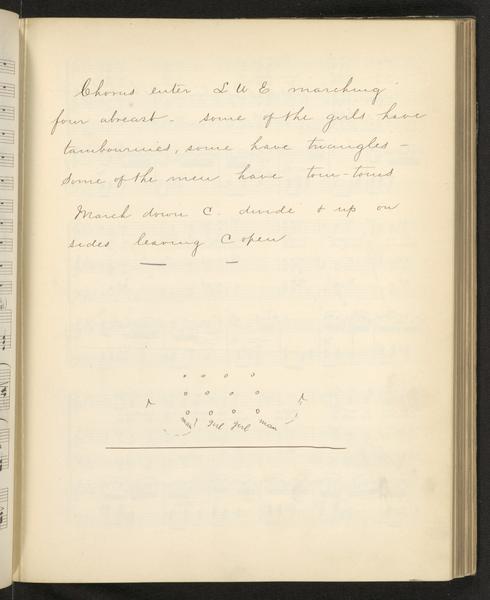 Chorus enter L U E marching
four abreast - some of the girls have
tambourines, some have triangles -
Some of the men have tom-toms
March down C. divide & up on
sides leaving C open
man girl girl man